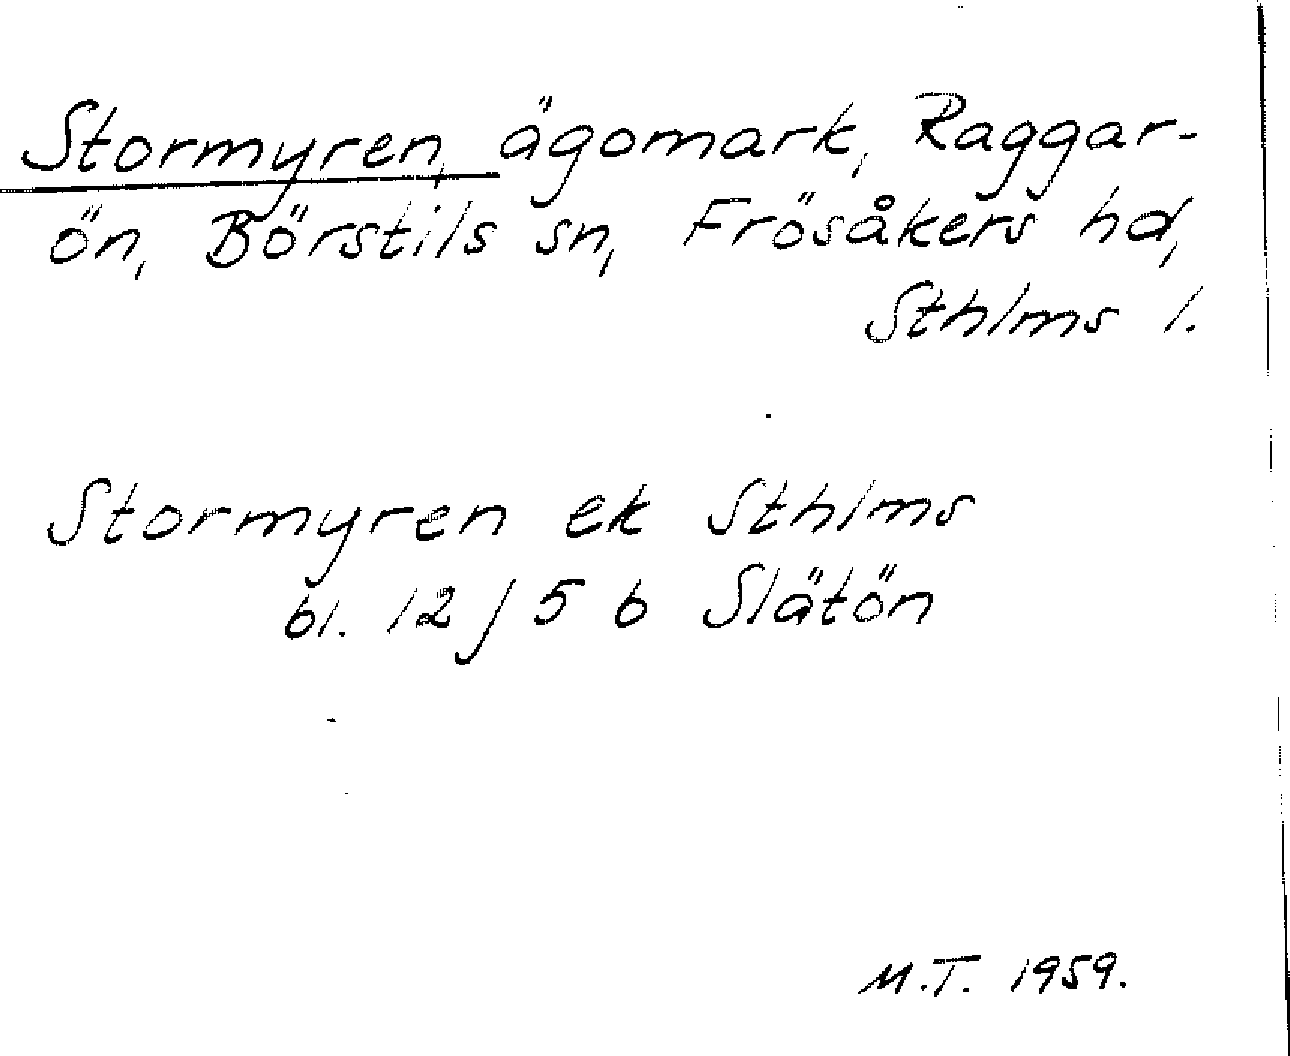 Stormyren, ägomark, Raggar-
ön, Börstils sn, Frösåkers hd,
Sthlms l.
Stormyren ek Sthlms
bl. 12/5 b Slätön
M.T. 1959.